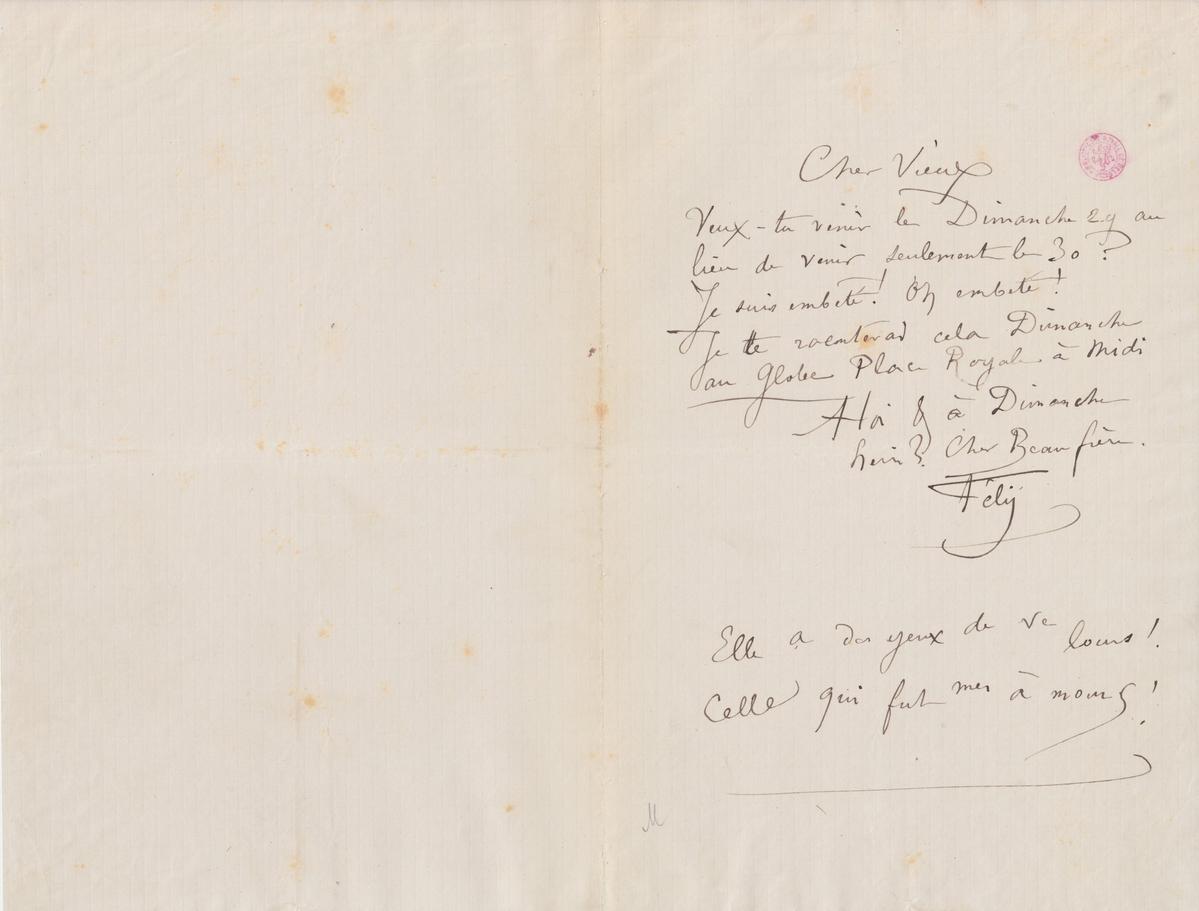 Cher Vieux
Veux-tu venir le Dimanche 29 au
lieu de venir seulement le 30 ?
Je suis embêté ! Oh embêté !
Je te raconterai cela Dimanche
au Globe Place Royale à Midi
A toi & à Dimanche
hein ? Cher Beau frère.
Fély
Elle a des yeux de ve lours !
Celle qui fut mes à mours !
M